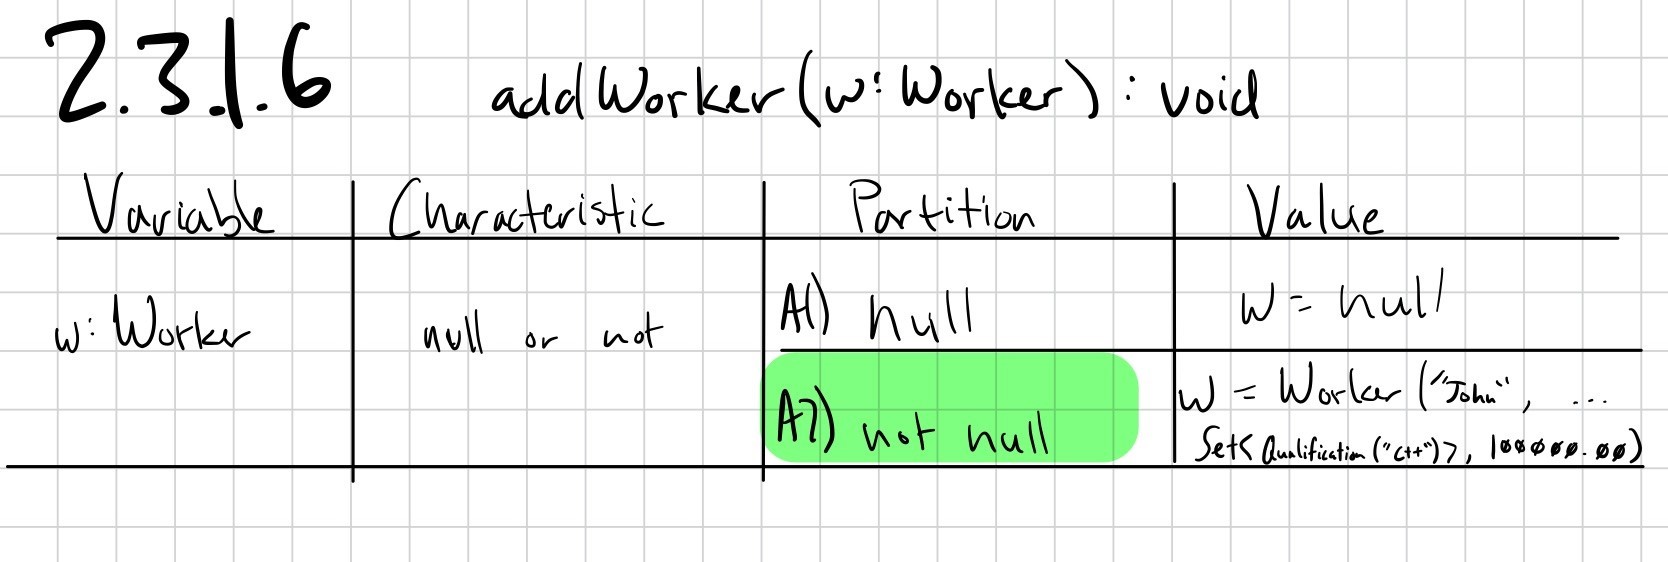 2.3.1.6 addWorker(w: Worker) : void
Variable Characteristic Partition Value
w: Worker null or not A1) null w = null
A2) not null w = Worker ("John", ...
Set<Qualification("C++")>, 100000.00)